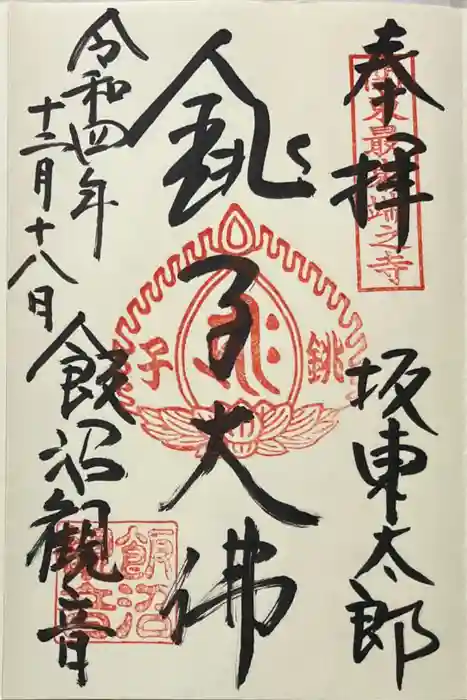 奉拝
坂東太郎
銚子大佛
令和四年
十二月十八日
飯沼観音
関東最東端之寺
銚子
飯沼
観音